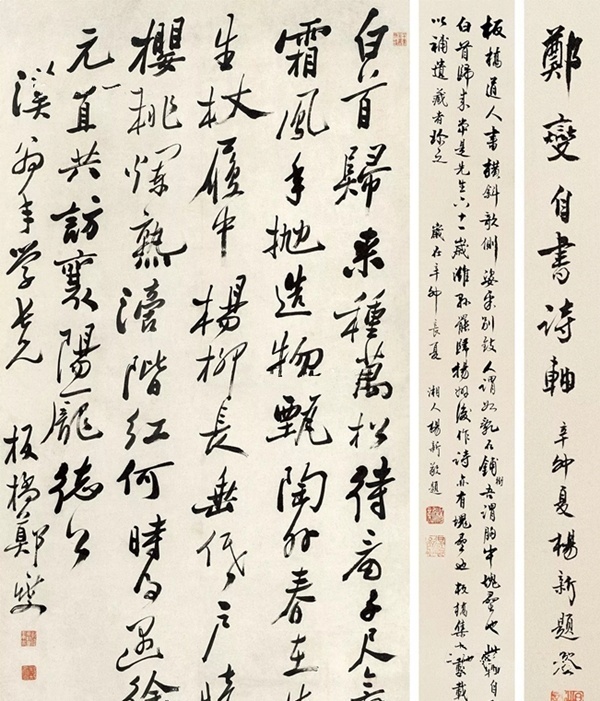 鄭燮自書詩軸 辛卯夏楊新題簽
板橋道人書橫斜欹側姿本別致人謂如亂石鋪街吾謂胸中塊壘也此軸自
白首歸來當是先生六十一歲濰縣罷歸揚州後作詩亦有塊壘也板橋集未載
以補遺藏者珍之 歲在辛卯長夏 湘人楊新敬題
白首歸來種萬松待看千尺
霜風手拋造物甄陶外春在
生杖履中楊柳長垂低戶暗
櫻桃爛熟滴階紅何時得遇徐
元直共訪襄陽龐德公
以溪翁年學長兄 板橋鄭燮